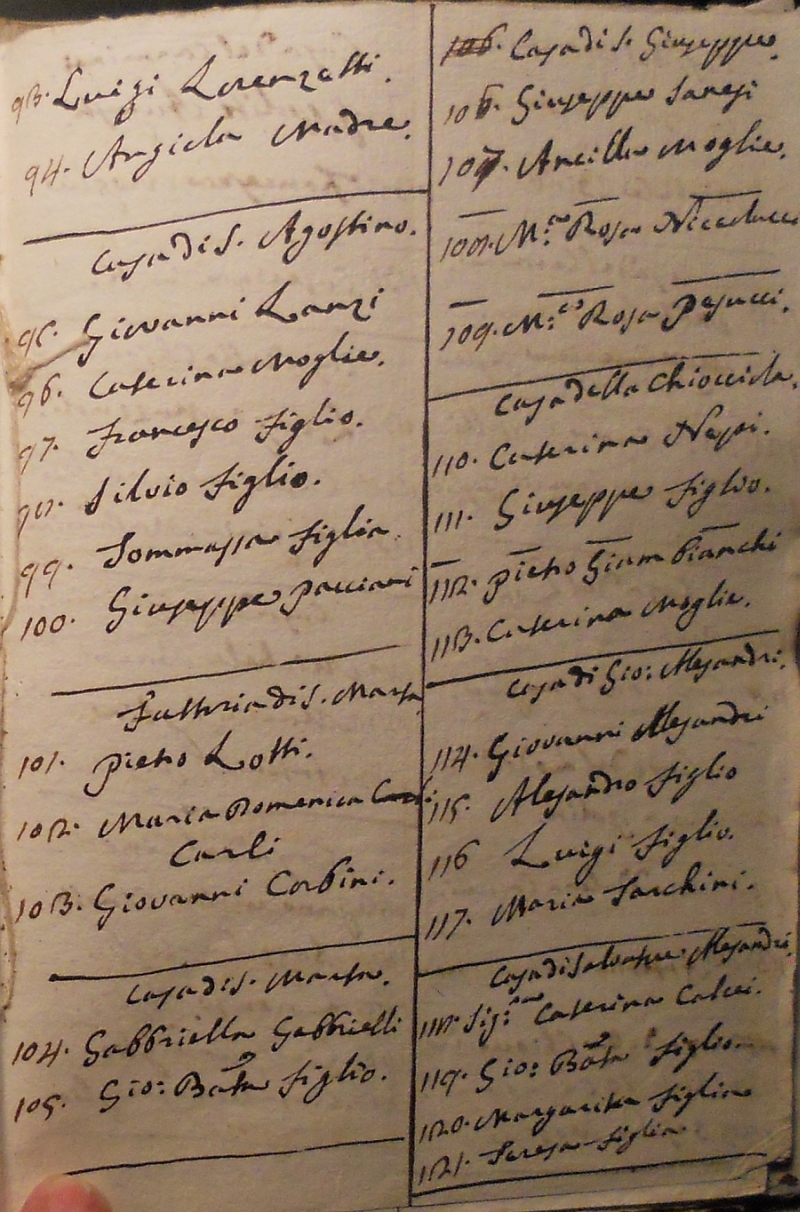 93. Luigi Lorenzetti.
94. Angiola Madre.
Casa di S. Agostino.
95. Giovanni Lanzi
96. Caterina Moglie.
97. Francesco figlio.
98. Silvio figlio.
99. Tommassa figlia.
100. Giuseppe Pacciani
Fattoria di S. Marta
101. Pietro Lotti.
102. Maria Domenica
Carli
103. Giovanni Corbini.
Casa di S. Marta.
104. Gabbriella Gabbrielli
105. Gio: Batta figlio.
106. Casa di S. Giuseppe.
106. Giuseppe Sanesi
107. Ancilla Moglie.
108. M.a Rosa Niccolucci
109. M.a Rosa Pasucci.
Casa della Chiocciola.
110. Caterina Nepi.
111. Giuseppe figlio.
112. Pietro Giam Bianchi
113. Caterina Moglie.
Casa di Gio: Alesandri.
114. Giovanni Alesandri
115. Alesandro figlio
116 Luigi figlio.
117. Maria Sarchini.
Casa di Salvatore Alesandri.
118. Sig:ra Caterina Calcei.
119. Gio: Batta figlio.
120. Margarita figlia
121. Teresa figlia